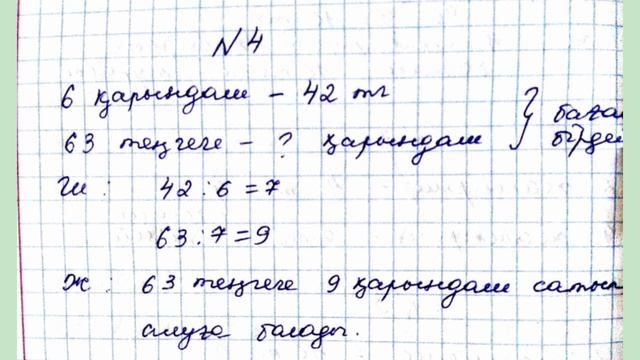 N 4
6 қарындаш – 42 тг
63 теңгеге – ? қарындаш
Ш : 42 : 6 = 7
63 : 7 = 9
Ж : 63 теңгеге 9 қарындаш сатып
алуға болады.